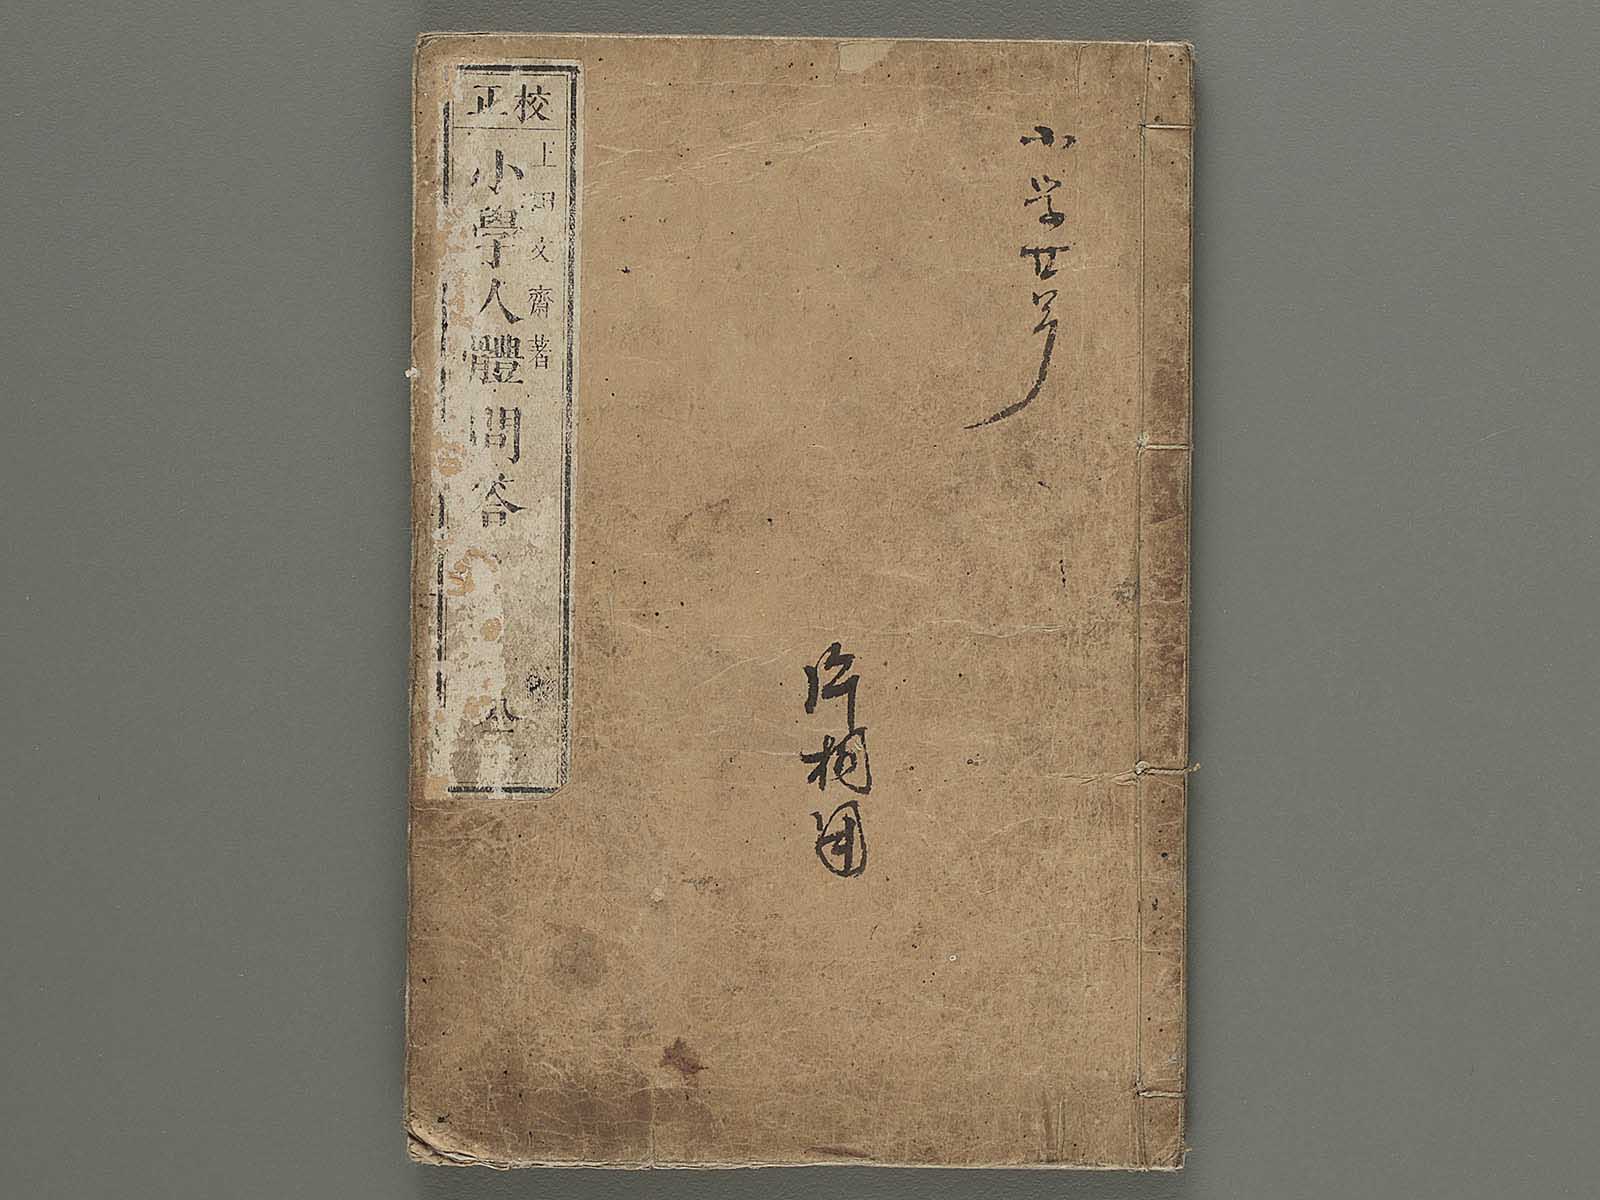 小学廿号
片桐用
校正
上田文齋著
小學人體問答
全